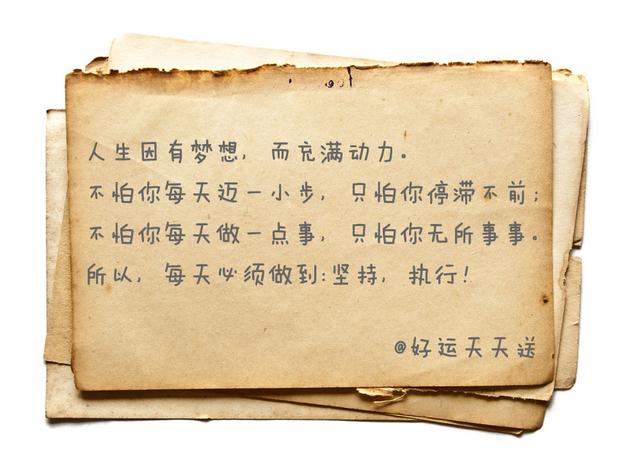 人生因有梦想，而充满动力。
不怕你每天迈一小步，只怕你停滞不前；
不怕你每天做一点事，只怕你无所事事。
所以，每天必须做到：坚持，执行！
@好运天天送